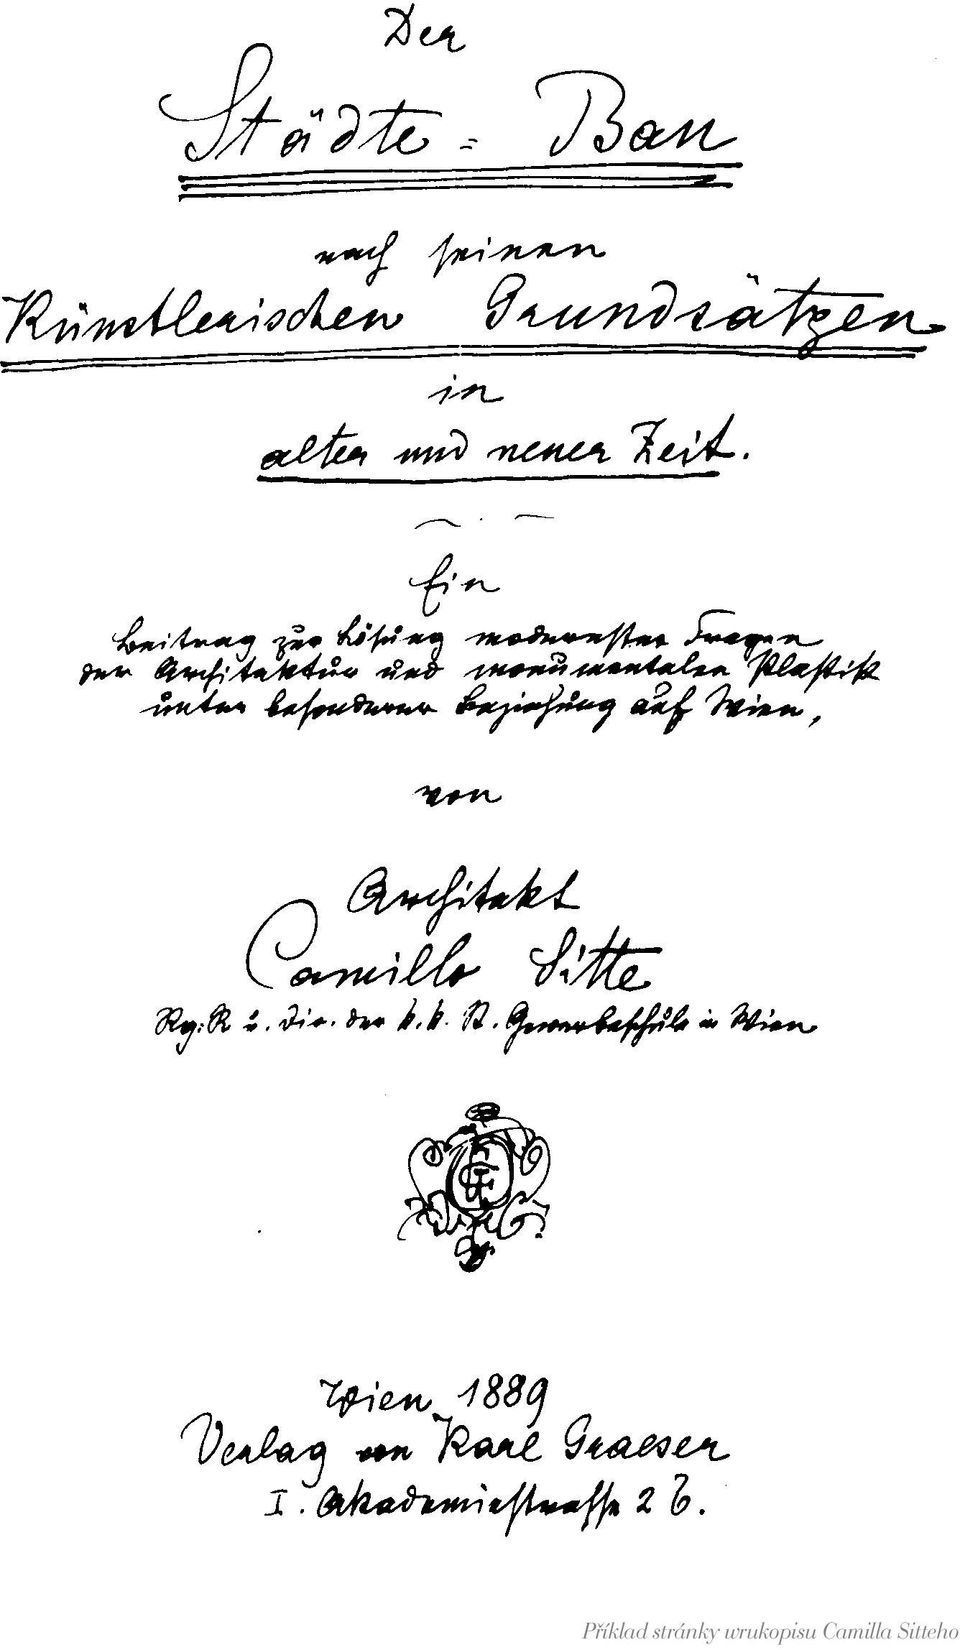 Der
Städte=Bau
nach seinen
Künstlerischen Grundsätzen
in
alter und neuer Zeit.
Ein
Beitrag zur Lösung modernster Fragen
der Architektur und monumentalen Plastik
unter besonderer Beziehung auf Wien,
von
Architekt
Camillo Sitte
Rg:R u. Dir. der k.k. St. Gewerbeschule in Wien
Wien 1889
Verlag von Karl Graeser
I. Akademiestrasse 2b.
Příklad stránky wrukopisu Camilla Sitteho